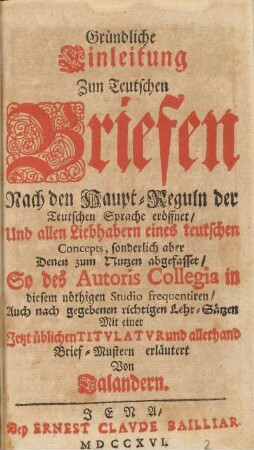 Gründliche
Einleitung
Zun Teutschen
Briefen
Nach den Haupt-Reguln der
Teutschen Sprache eröffnet/
Und allen Liebhabern eines teutschen
Concepts, sonderlich aber
Denen zum Nutzen abgefasset/
So des Autoris Collegia in
diesem nöthigen Studio frequentiren/
Auch nach gegebenen richtigen Lehr-Sätzen
Mit einer
Jetzt üblichen TITVLATVR und allerhand
Brief-Mustern erläutert
Von
Talandern.
JENA/
Bey ERNEST CLAUDE BAILLIAR.
MDCCXVI.
2